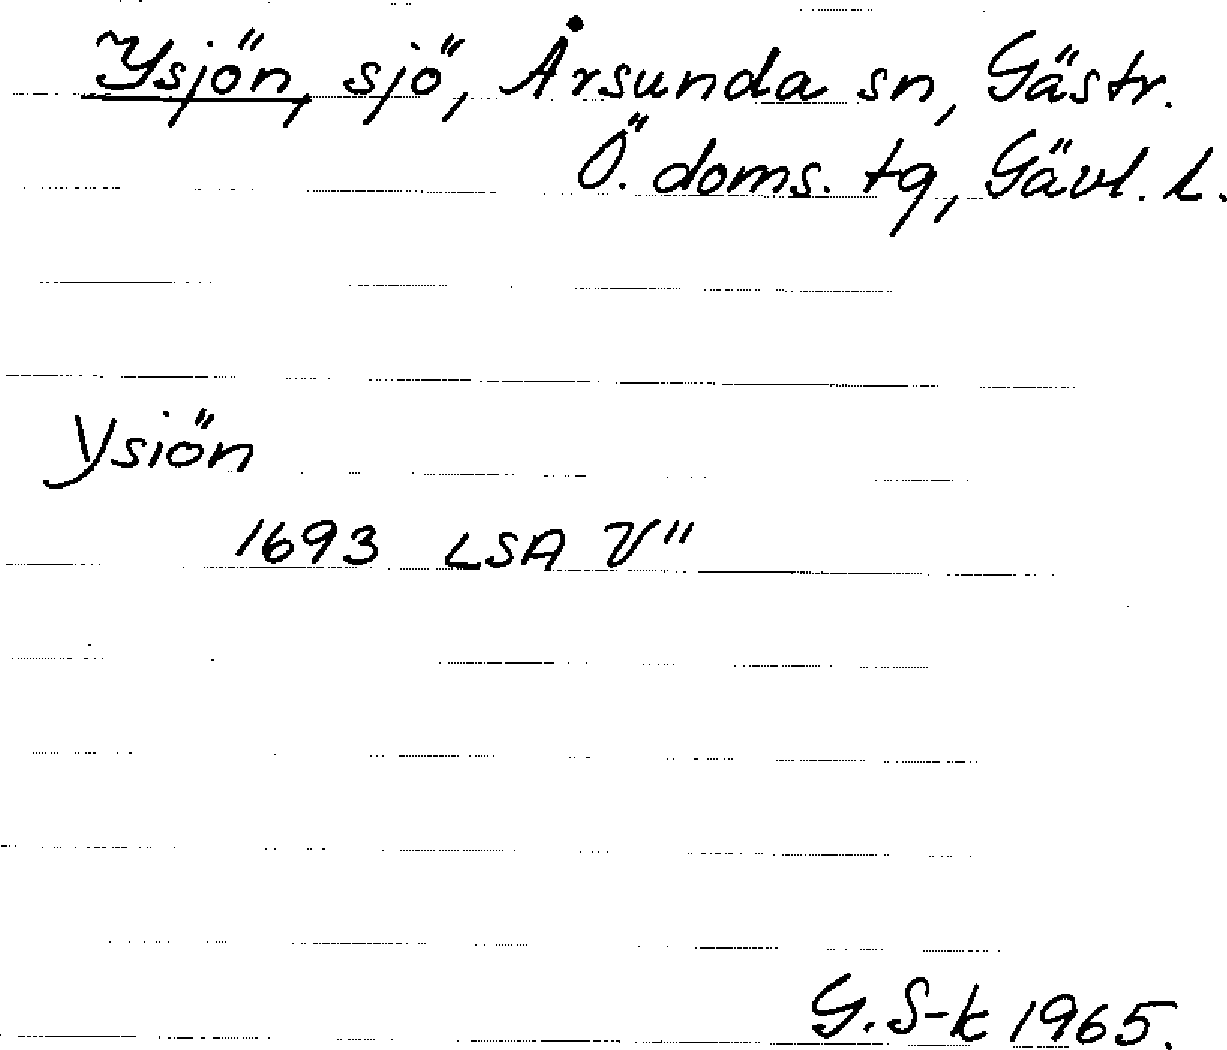 Ysjön, sjö, Årsunda sn, Gästr.
Ö. doms. tg, Gävl. L.
Ysiön
1693 LSA V"
G. S-k 1965.